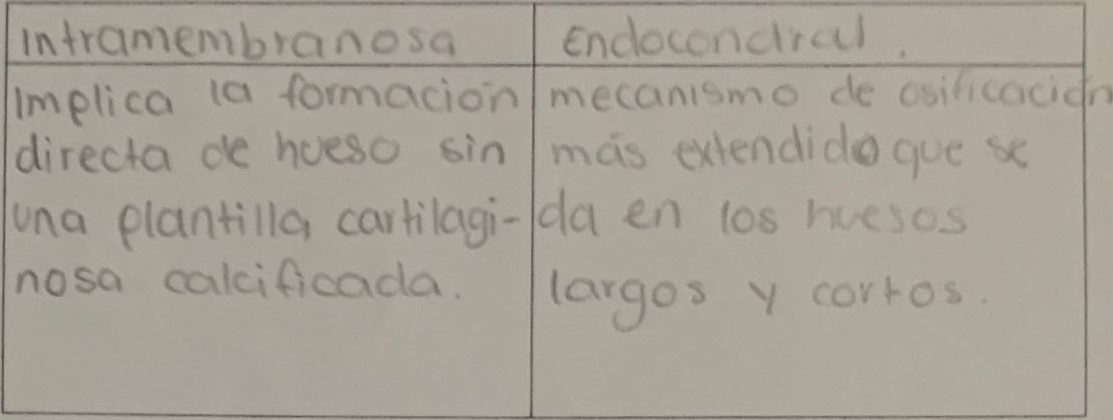 Intramembranosa
Implica la formación
directa de hueso sin
una plantilla cartilagi-
nosa calcificada.
Endocondral.
mecanismo de osificación
más extendido que se
da en los huesos
largos y cortos.